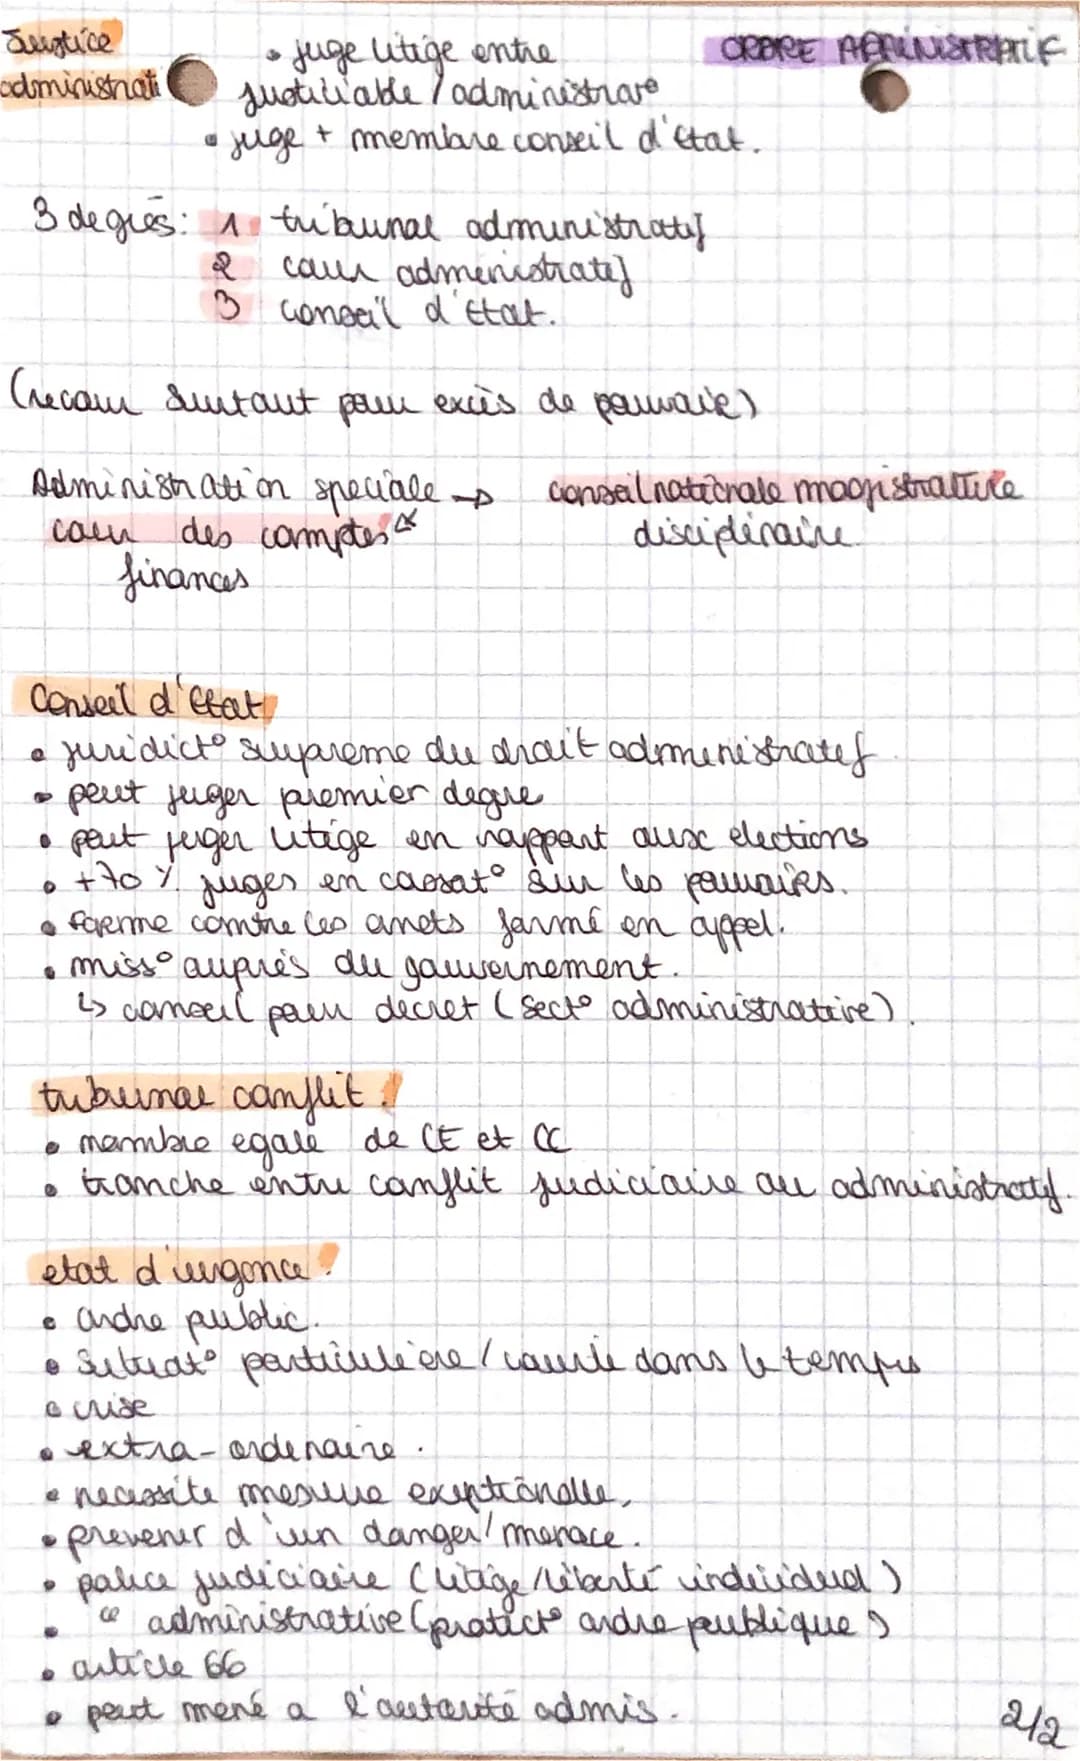 Justice
ORDRE ADMINISTRATIF
administrati
• juge litige entre
justiciable / administrat°
• juge + membre conseil d'Etat.
3 degrés: 1 tribunal administratif
2 cour administratif
3 conseil d'Etat.
(recour surtout pour excès de pouvoir)
Administration speciale → conseil nationale magistrature
cour des comptes disciplinaire
finances
Conseil d'Etat
• juridict° supreme du droit administratif
• peut juger premier degre
• peut juger litige en rapport aux elections
• +70 % juges en cassat° sur les pouvoirs.
• forme contre les arrets formé en appel.
• miss° auprès du gouvernement.
↳ conseil pour decret (sect° administrative).
tribunal conflit !
• membre egale de CE et CC
• tranche entre conflit judiciaire ou administratif.
etat d'urgence !
• ordre public.
• Situat° particulière / courte dans le temps
• crise
• extra-ordenaire.
• necessite mesure exeptionelle,
• prevenir d'un danger / menace.
• police judiciaire (litige / liberté individuel)
• " administrative (protect° ordre publique)
• article 66
• peut mené a l'autorité admis.
2/2